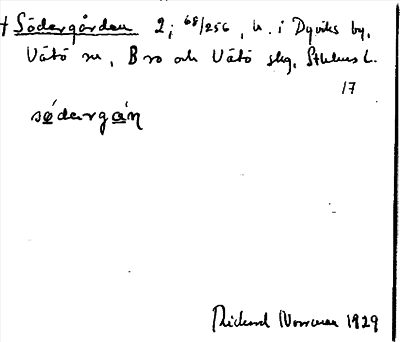 † Södergården 2; 68/256, h. i Dyviks by,
Vätö sn, Bro och Vätö skg, Sthlms l.
17
södargán
Rickard 1929